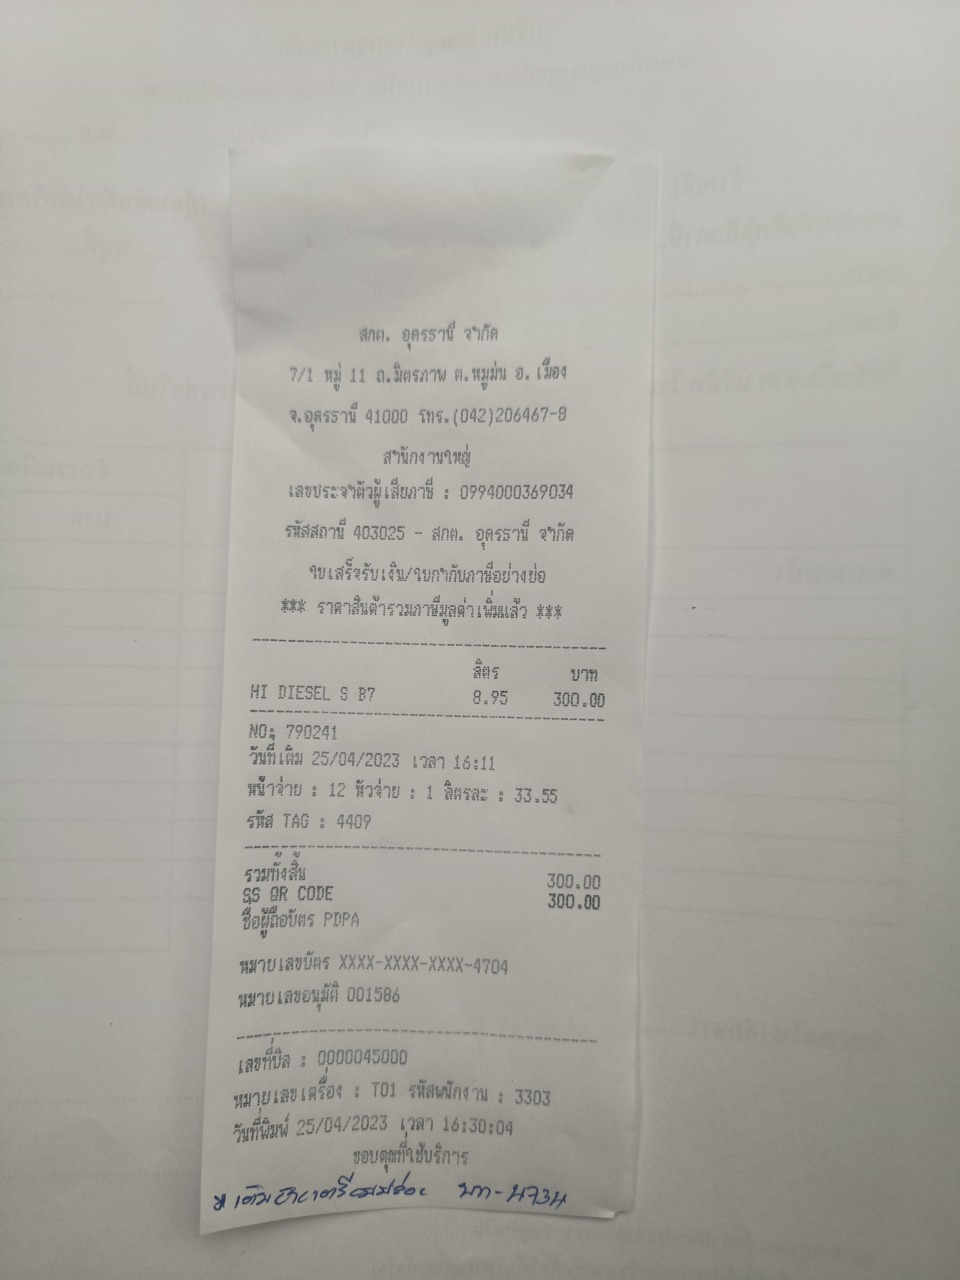 สกต. อุดรธานี จำกัด
7/1 หมู่ 11 ถ.มิตรภาพ ต.หมูม่น อ. เมือง
จ.อุดรธานี 41000 โทร.(042)206467-8
สำนักงานใหญ่
เลขประจำตัวผู้เสียภาษี : 0994000369034
รหัสสถานี 403025 - สกต. อุดรธานี จำกัด
ใบเสร็จรับเงิน/ใบกำกับภาษีอย่างย่อ
*** ราคาสินค้ารวมภาษีมูลค่าเพิ่มแล้ว ***
ลิตร บาท
HI DIESEL S B7 8.95 300.00
NO: 790241
วันที่เติม 25/04/2023 เวลา 16:11
หน้าจ่าย : 12 หัวจ่าย : 1 ลิตรละ : 33.55
รหัส TAG : 4409
รวมทั้งสิ้น 300.00
SS QR CODE 300.00
ชื่อผู้ถือบัตร PDPA
หมายเลขบัตร XXXX-XXXX-XXXX-4704
หมายเลขอนุมัติ 001586
เลขที่บิล : 0000045000
หมายเลขเครื่อง : T01 รหัสพนักงาน : 3303
วันที่พิมพ์ 25/04/2023 เวลา 16:30:04
ขอบคุณที่ใช้บริการ